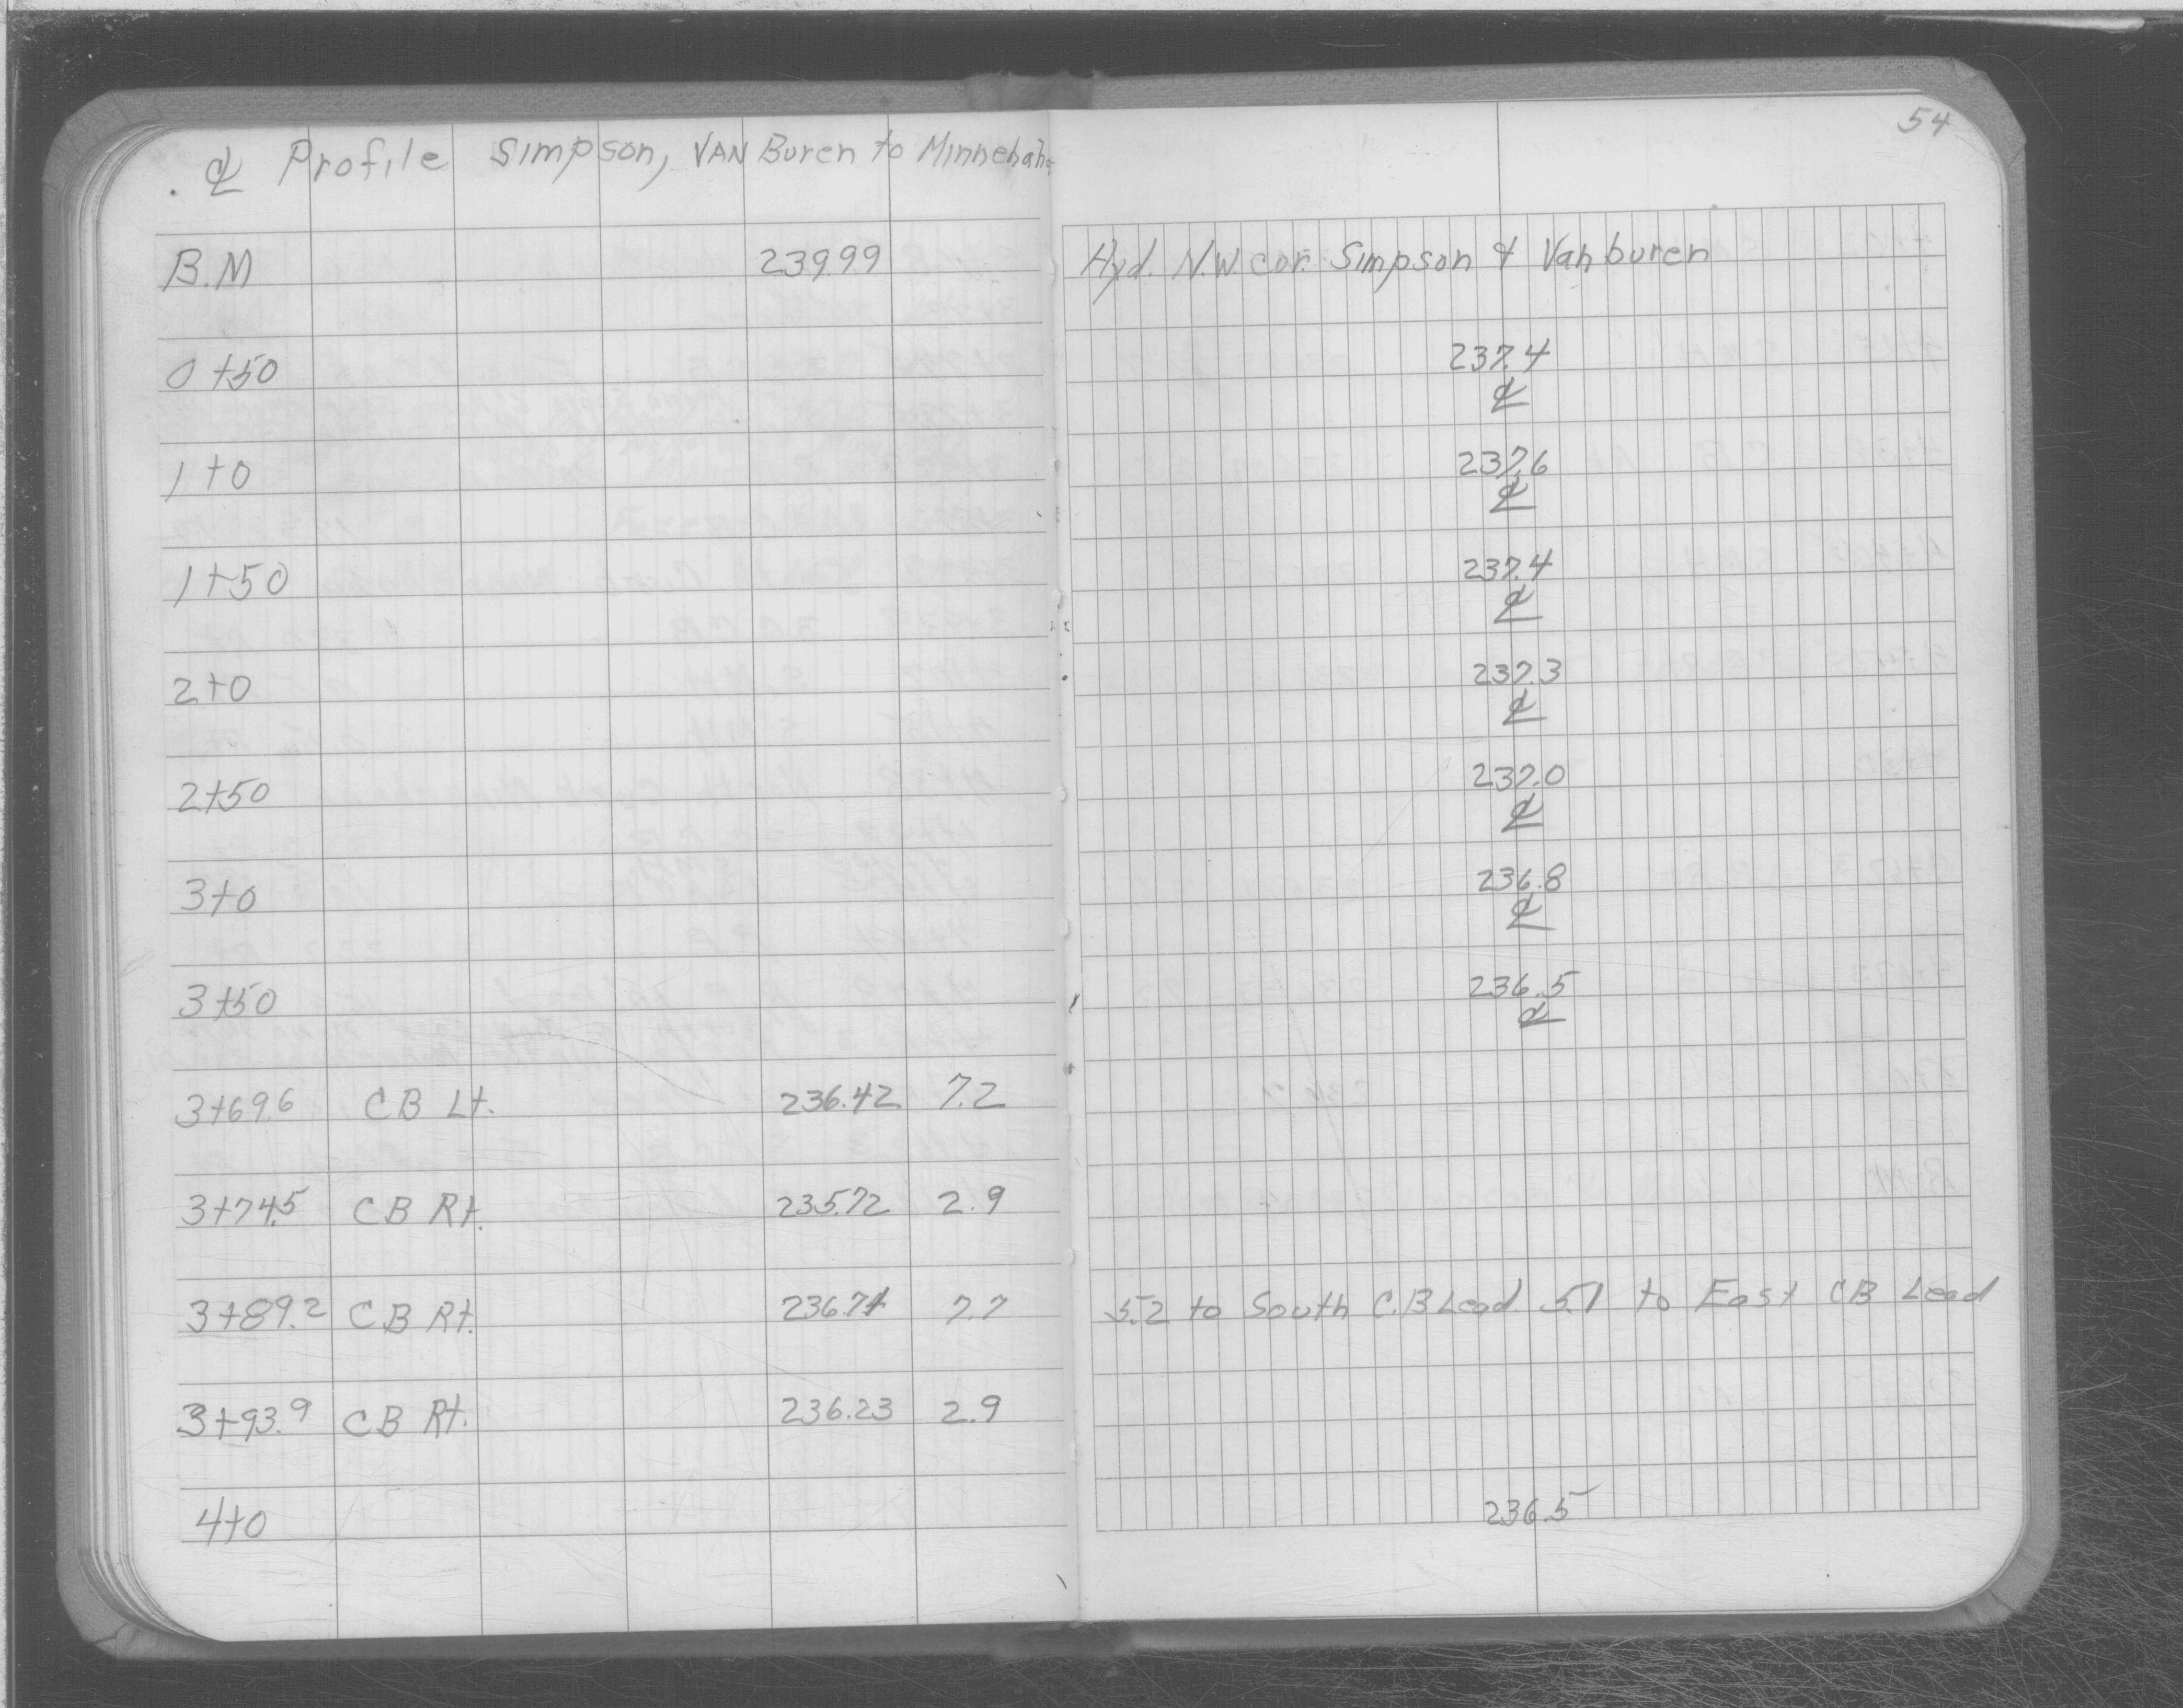 54
℄ Profile Simpson, VAN Buren to Minnehaha
B.M 239.99 Hyd. N.W cor. Simpson & Vanburen
0+50 237.4
℄
1+0 237.6
℄
1+50 237.4
℄
2+0 237.3
℄
2+50 237.0
℄
3+0 236.8
℄
3+50 236.5
℄
3+69.6 CB Lt. 236.42 7.2
3+74.5 CB Rt. 235.72 2.9
3+89.2 CB Rt. 236.74 7.7 5.2 to South C.B Lead 5.1 to East CB Lead
3+93.9 CB Rt. 236.23 2.9
4+0 236.5